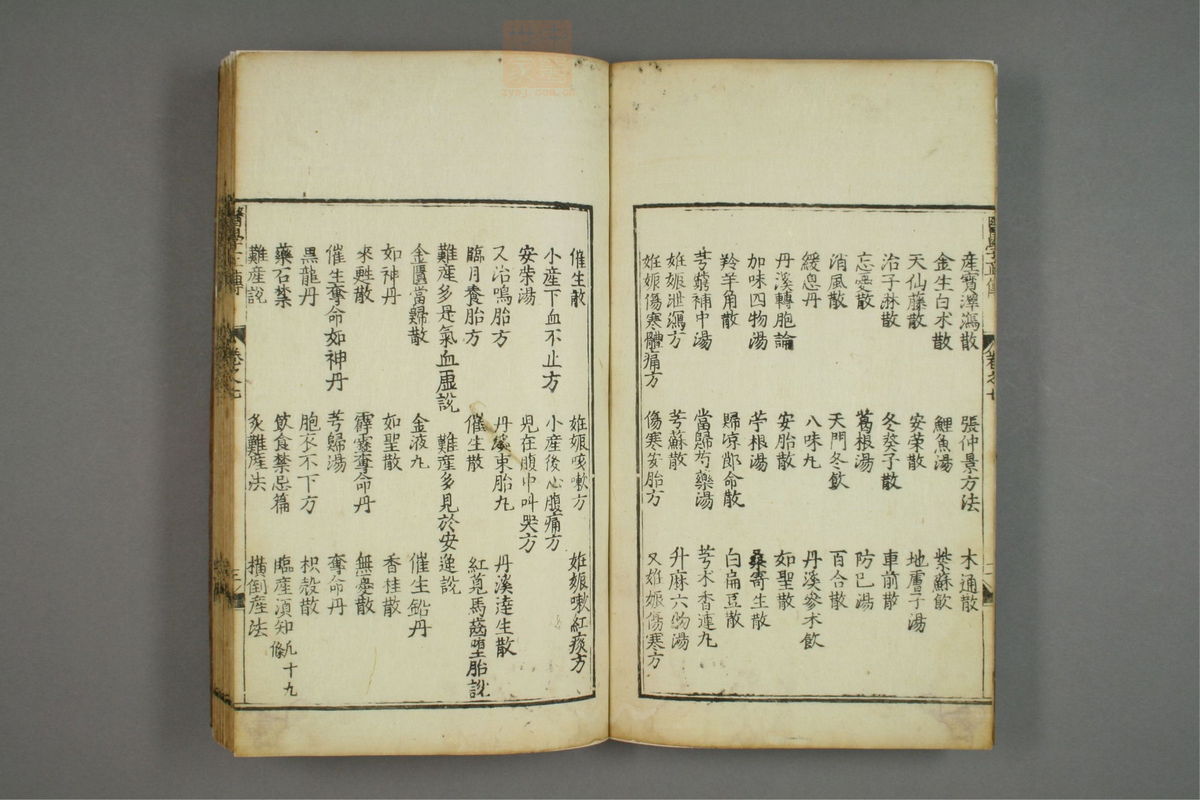 產寶澤瀉散 張仲景方法 木通散
金生白朮散 鯉魚湯 紫蘇飲
天仙藤散 安荣散 地膚子湯
治子淋散 冬葵子散 車前散
忘憂散 葛根湯 防己湯
消風散 天門冬飲 百合散
緩息丹 八味丸 丹溪參朮飲
丹溪轉胞論 安胎散 如聖散
加味四物湯 苧根湯 桑寄生散
羚羊角散 歸凉郎命散 白扁豆散
芎藭補中湯 當歸芍藥湯 芩朮香連丸
姙娠泄瀉方 芎蘇散 升麻六物湯
姙娠傷寒體痛方 傷寒安胎方 又姙娠傷寒方
醫學正傳 卷之七
催生散 姙娠咳嗽方 姙娠嗽紅痰方
小產下血不止方 小產後心腹痛方
安柴湯 児在腹中叫哭方
又治鳴胎方 丹溪束胎丸 丹溪達生散
臨月養胎方 催生散 紅莧馬齒堕胎說
難產多是氣血虛說 難產多見於安逸說
金匱當歸散 金液丸 催生鉛丹
如神丹 如聖散 香桂散
來甦散 霹靂奪命丹 無憂散
催生奪命如神丹 芎歸湯 奪命丹
黒龍丹 胞衣不下方 枳殼散
藥石禁 飲食禁忌篇 臨產湏知凡十九條
難產說 炙難產法 橫倒產法
醫學正傳 卷之七 三